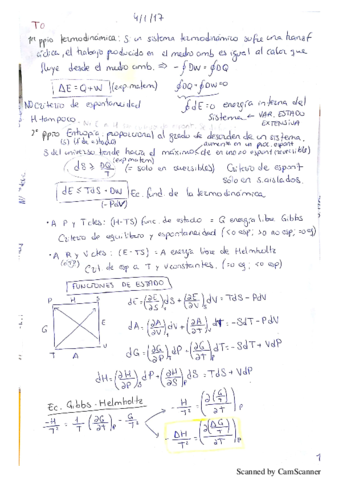 TO
4/1/17
1er ppio termodinámica: Si un sistema termodinámico sufre una transf
cíclica, el trabajo producido en el medio amb es igual al calor que
fluye desde el medio amb. ⇒ -∮DW = ∮DQ
ΔE = Q + W (exp matem) ∮DQ - ∮DW = 0
NO criterio de espontaneidad ∮dE = 0 energía interna del
H tampoco. sistema VAR. ESTADO
EXTENSIVA
2º ppio Entropía: proporcional al grado de desorden de un sistema.
S del universo tiende hacia el máximo
(exp matem)
dS ≥ DQ/T (= solo en reversibles) Criterio de espont
sólo en s. aislados.
dE ≤ TdS + DW Ec. fund de la termodinámica
(-PdV)
• A P y T ctes: (H-TS) func. de estado = G energía libre Gibbs
Criterio de equilibrio y espontaneidad (<0 esp; >0 no esp; =0 eq)
• A V y T ctes: (E-TS) = A energía libre de Helmholtz
Crit de esp a T y V constantes. (=0 eq; <0 esp)
FUNCIONES DE ESTADO
P H S
G E
T A V
dE = (∂E/∂S)v dS + (∂E/∂V)s dV = TdS - PdV
dA = (∂A/∂V)T dV + (∂A/∂T)v dT = -SdT - PdV
dG = (∂G/∂P)T dP + (∂G/∂T)P dT = -SdT + VdP
dH = (∂H/∂P)s dP + (∂H/∂S)P dS = TdS + VdP
Ec. Gibbs-Helmholtz
-H/T² = 1/T (∂G/∂T)P - G/T²
-H/T² = (∂(G/T)/∂T)P
-ΔH/T² = (∂(ΔG/T)/∂T)P
1
Scanned by CamScanner